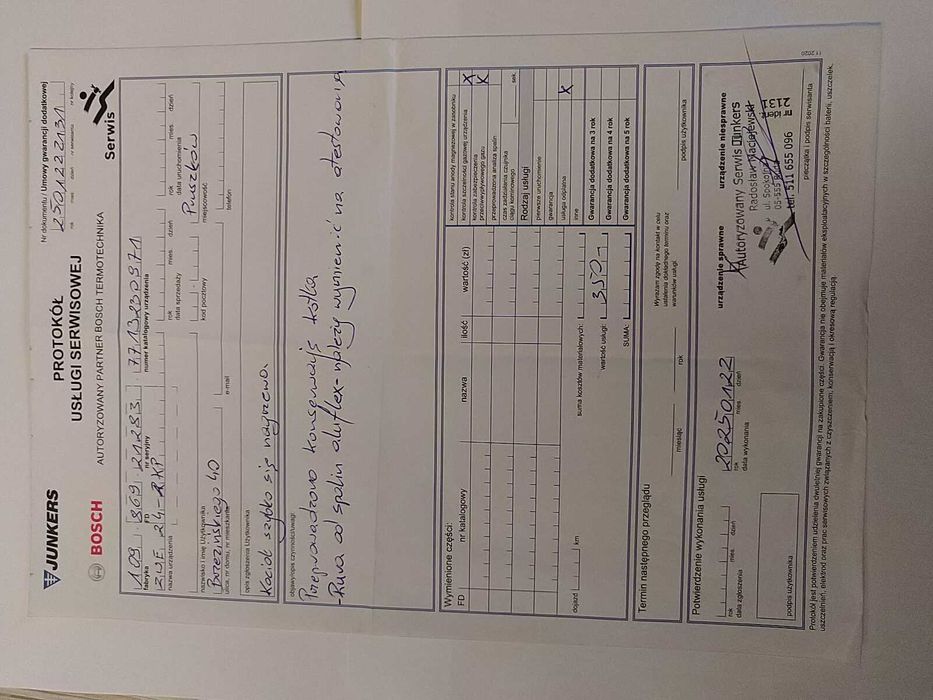 JUNKERS
BOSCH
PROTOKÓŁ
USŁUGI SERWISOWEJ
AUTORYZOWANY PARTNER BOSCH TERMOTECHNIKA
Nr dokumentu Umowy gwarancji dodatkowej
250122 2131
rok mies dzień nr serwisanta nr kolejny
Serwis
109 869 21283 7713230971
fabryka FD nr seryjny numer katalogowy urządzenia
ZWE 24-2KP
nazwa urządzenia
rok mies dzień
data sprzedaży
rok mies dzień
data uruchomienia
nazwisko i imię Użytkownika
kod pocztowy
Pruszków
miejscowość
Brzezińskiego 40
ulica, nr domu, nr mieszkania
e-mail
telefon
opis zgłoszenia Użytkownika
Kocioł szybko się nagrzewa.
objawy/opis czynności/uwagi
Przeprowadzono konserwację kotła
- Rura od spalin aluflex - należy wymienić na testowaną
Wymienione części:
FD nr katalogowy nazwa ilość wartość (zł)
kontrola stanu anody magnezowej w zasobniku
kontrola szczelności gazowej urządzenia X
kontrola zabezpieczenia przeciwwypływowego gazu X
przeprowadzona analiza spalin
czas zadziałania czujnika ciągu kominowego sek.
Rodzaj usługi
pierwsze uruchomienie
gwarancja
usługa odpłatna X
inne
Gwarancja dodatkowa na 3 rok
Gwarancja dodatkowa na 4 rok
Gwarancja dodatkowa na 5 rok
dojazd km
suma kosztów materiałowych:
wartość usługi: 350,-
SUMA:
Termin następnego przeglądu
miesiąc rok
Wyrażam zgodę na kontakt w celu
ustalenia dokładnego terminu oraz
warunków usługi
podpis użytkownika
Potwierdzenie wykonania usługi
rok mies. dzień
data zgłoszenia
20250122
rok mies. dzień
data wykonania
urządzenie sprawne
urządzenie niesprawne
podpis użytkownika
Autoryzowany Serwis Junkers
Radosław Maciejewski
ul. Spokojna
05-555
tel. 511 655 096
nr ident.
2131
pieczątka i podpis serwisanta
Protokół jest potwierdzeniem udzielenia dwuletniej gwarancji na zakupione części. Gwarancja nie obejmuje materiałów eksploatacyjnych w szczególności baterii, uszczelek,
uszczelnień, elektrod oraz prac serwisowych związanych z czyszczeniem, konserwacją i okresową regulacją.
11.2020